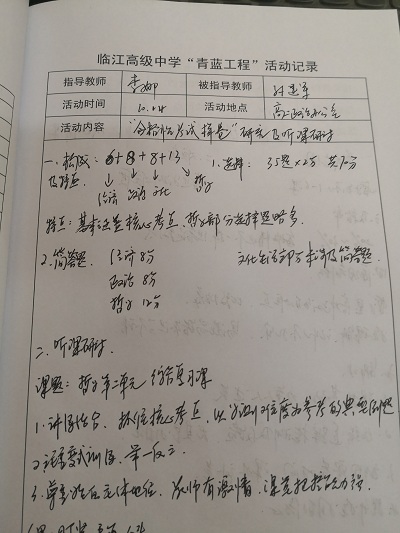 临江高级中学“青蓝工程”活动记录
指导教师 李娜 被指导教师
活动时间 10.14 活动地点 高二政治办公室
活动内容 “合格性考试摸卷”研究及听课研讨
一、构成: 6+8+8+13 1.选择: 35题×2分 共70分
及特点: ↓ ↓ ↓ 哲学
经济 政治 文化
特点: 基本还是核心考点, 哲学部分选择题略多
2.简答题 经济 8分 文化生活部分未涉及简答题
政治 8分
哲学 12分
二、听课研讨
课题: 哲学第一单元 综合复习课
1.讲练结合, 抓住核心考点, 以 为参考的典型例题
2.注重变式训练, 举一反三
3.尊重学生主体地位, 教师有激情, 课堂把控能力强